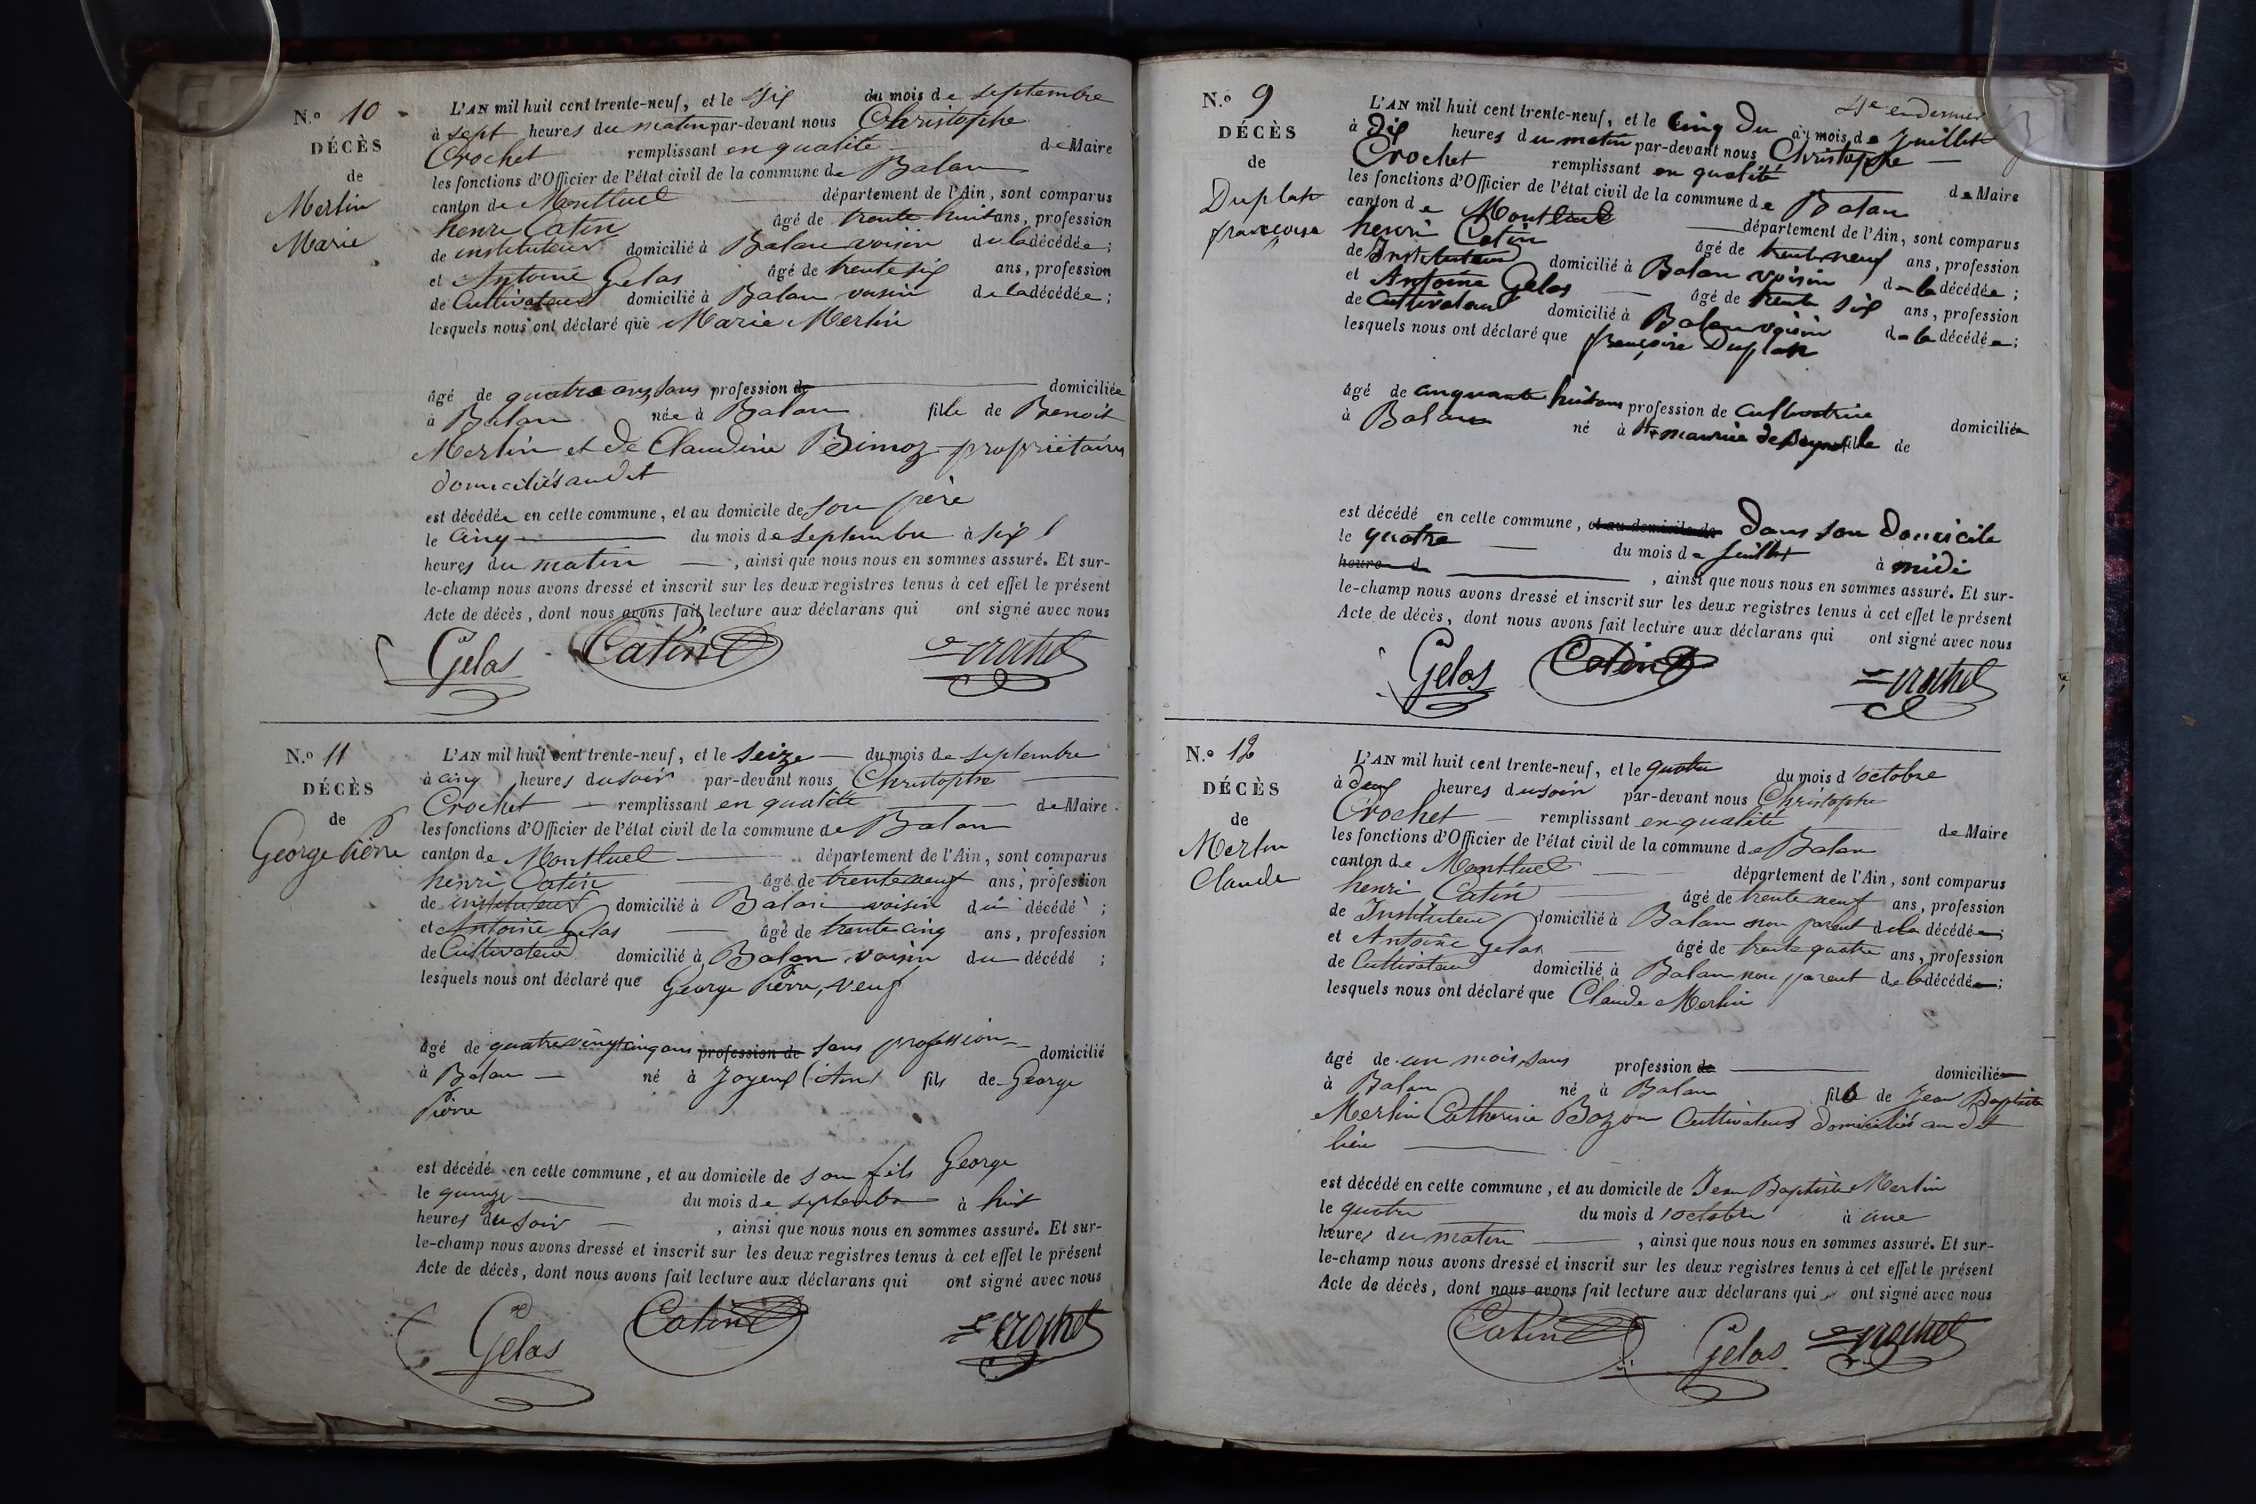 N.º 10
DÉCÈS
de
Merlin
Marie
L'AN mil huit cent trente-neuf, et le six du mois de septembre
à sept heures du matin par-devant nous Christophe
Crochet remplissant en qualité de Maire
les fonctions d'Officier de l'état civil de la commune de Balan
canton de Montluel département de l'Ain, sont comparus
henri Catin âgé de trente huit ans, profession
de instituteur domicilié à Balan voisin de la décédée;
et Antoine Gelas âgé de trente six ans, profession
de Cultivateur domicilié à Balan voisin de la décédée;
lesquels nous ont déclaré que Marie Merlin
âgé de quatre ans, sans profession de domiciliée
à Balan née à Balan fille de Benoit
Merlin et de Claudine Bimoz propriétaires
domiciliés au dit
est décédée en cette commune, et au domicile de son père
le cinq du mois de septembre à six
heures du matin, ainsi que nous nous en sommes assuré. Et sur-
le-champ nous avons dressé et inscrit sur les deux registres tenus à cet effet le présent
Acte de décès, dont nous avons fait lecture aux déclarans qui ont signé avec nous
Gelas Catin Crochet
N.º 11
DÉCÈS
de
George Pierre
L'AN mil huit cent trente-neuf, et le seize du mois de septembre
à cinq heures du soir par-devant nous Christophe
Crochet remplissant en qualité de Maire
les fonctions d'Officier de l'état civil de la commune de Balan
canton de Montluel département de l'Ain, sont comparus
henri Catin âgé de trente neuf ans, profession
de instituteur domicilié à Balan voisin du décédé;
et Antoine Gelas âgé de trente cinq ans, profession
de Cultivateur domicilié à Balan voisin du décédé;
lesquels nous ont déclaré que George Pierre, veuf
âgé de quatre vingt cinq ans profession de sans profession domicilié
à Balan né à Joyeux (Ain) fils de George
Pierre
est décédé en cette commune, et au domicile de son fils George
le quinze du mois de septembre à huit
heures du soir, ainsi que nous nous en sommes assuré. Et sur-
le-champ nous avons dressé et inscrit sur les deux registres tenus à cet effet le présent
Acte de décès, dont nous avons fait lecture aux déclarans qui ont signé avec nous
Gelas Catin Crochet
N.º 9
DÉCÈS
de
Duplat
françoise
4e et dernier
L'AN mil huit cent trente-neuf, et le Cinq Du du mois de Juillet
à Dix heures du matin par-devant nous Christophe
Crochet remplissant en qualité de Maire
les fonctions d'Officier de l'état civil de la commune de Balan
canton de Montluel département de l'Ain, sont comparus
henri Catin âgé de trente neuf ans, profession
de Instituteur domicilié à Balan voisin de la décédée;
et Antoine Gelas âgé de trente six ans, profession
de Cultivateur domicilié à Balan voisin de la décédée;
lesquels nous ont déclaré que françoise Duplat
âgé de cinquante huit ans profession de Cultivatrice domiciliée
à Balan né à St maurice de Beynost fille de
est décédé en cette commune, et au domicile de dans son domicile
le quatre du mois de Juillet à midi
heures d, ainsi que nous nous en sommes assuré. Et sur-
le-champ nous avons dressé et inscrit sur les deux registres tenus à cet effet le présent
Acte de décès, dont nous avons fait lecture aux déclarans qui ont signé avec nous
Gelas Catin Crochet
N.º 12
DÉCÈS
de
Merlin
Claude
L'AN mil huit cent trente-neuf, et le quatre du mois d'octobre
à deux heures du soir par-devant nous Christophe
Crochet remplissant en qualité de Maire
les fonctions d'Officier de l'état civil de la commune de Balan
canton de Montluel département de l'Ain, sont comparus
henri Catin âgé de trente neuf ans, profession
de Instituteur domicilié à Balan non parent de la décédée;
et Antoine Gelas âgé de trente quatre ans, profession
de Cultivateur domicilié à Balan non parent de la décédée;
lesquels nous ont déclaré que Claude Merlin
âgé de un mois, sans profession de domicilié
à Balan né à Balan fils de Jean Baptiste
Merlin Catherine Bozon Cultivateurs domiciliés au dit
lieu
est décédé en cette commune, et au domicile de Jean Baptiste Merlin
le quatre du mois d'octobre à une
heures du matin, ainsi que nous nous en sommes assuré. Et sur-
le-champ nous avons dressé et inscrit sur les deux registres tenus à cet effet le présent
Acte de décès, dont nous avons fait lecture aux déclarans qui ont signé avec nous
Catin Gelas Crochet